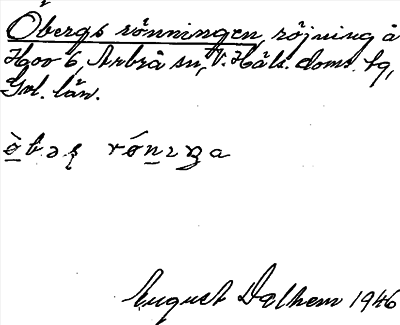 Öbergs rönningen, röjning å
Hgov 6, Arbrå sn, V. Häls. doms. tg,
Gvl. län.
August Dalhem 1946